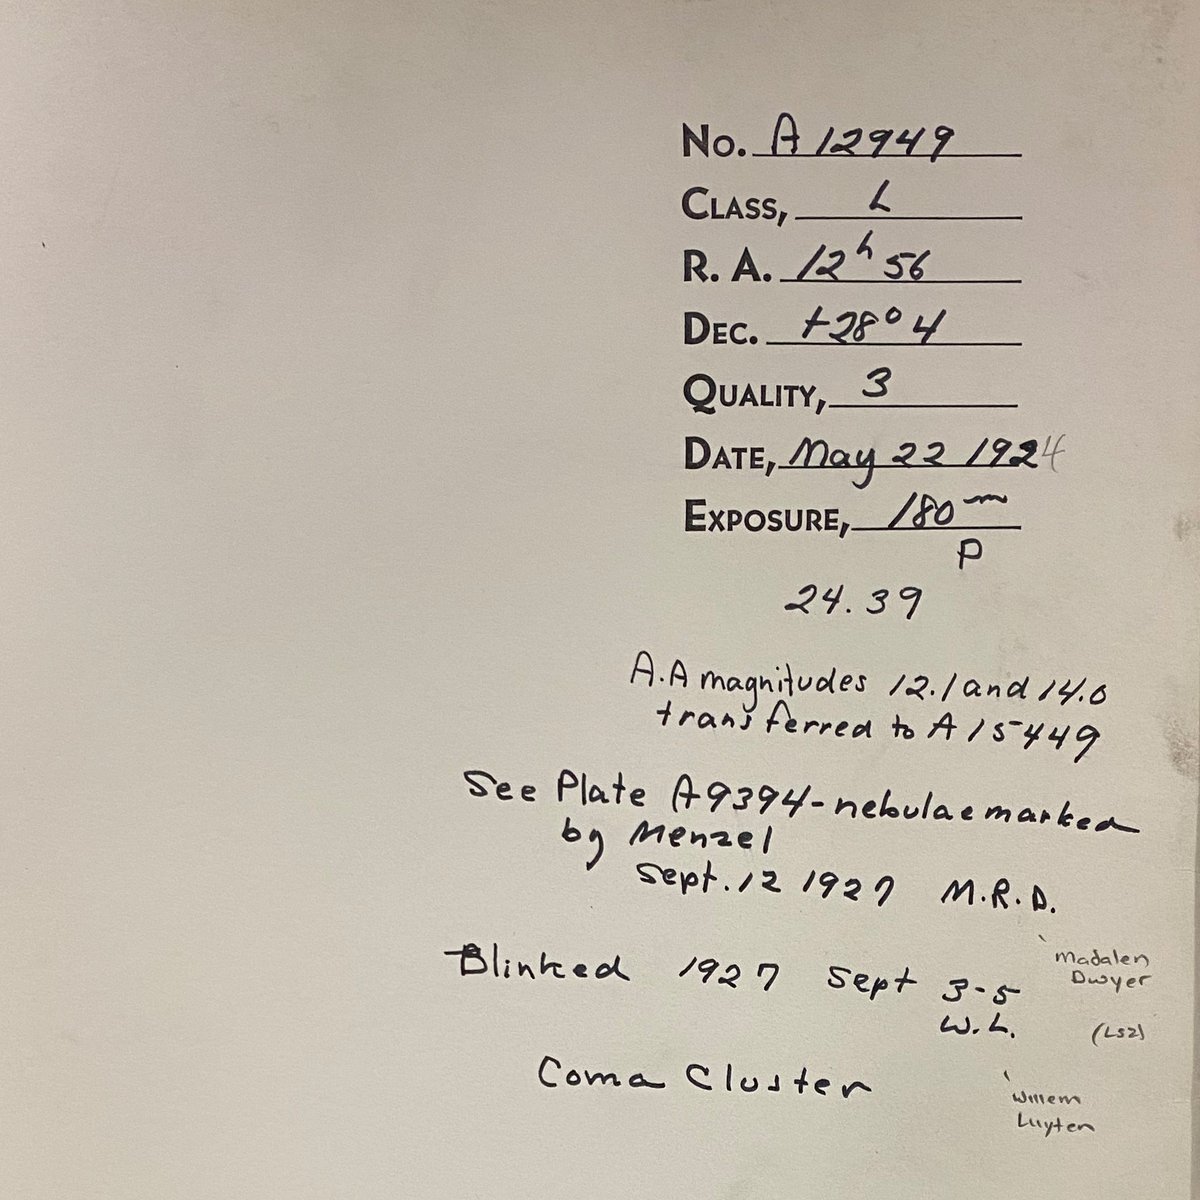 No. A 12949
CLASS, L
R. A. 12h 56
DEC. +28° 4
QUALITY, 3
DATE, May 22 1924
EXPOSURE, 180m
P
24.39
A.A magnitudes 12.1 and 14.0
transferred to A 15449
See Plate A9394-nebulae marked
by Menzel
Sept. 12 1927 M.R.D.
Madalen
Dwyer
Blinked 1927 Sept 3-5
W.L.
(LS2)
Coma Cluster
Willem
Luyten